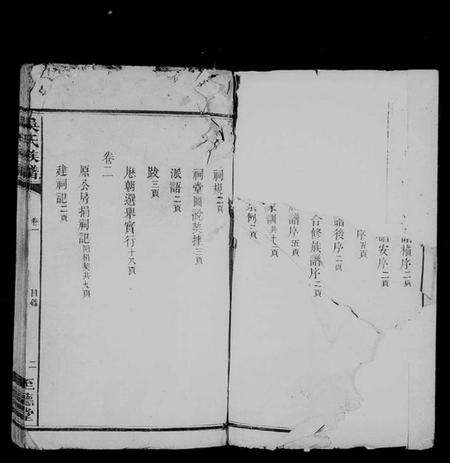 譜橫序二頁
譜安序二頁
序五頁
譜後序二頁
合修族譜序二頁
譜序五頁
家訓共十二頁
凡例二頁
祠規二頁
祠堂圖說契據三頁
派語二頁
跋三頁
卷二
歷朝選舉實行十八頁
原公房捐祠記附捐契共九頁
建祠記二頁
吳氏族譜
卷一
目錄
二
至德堂